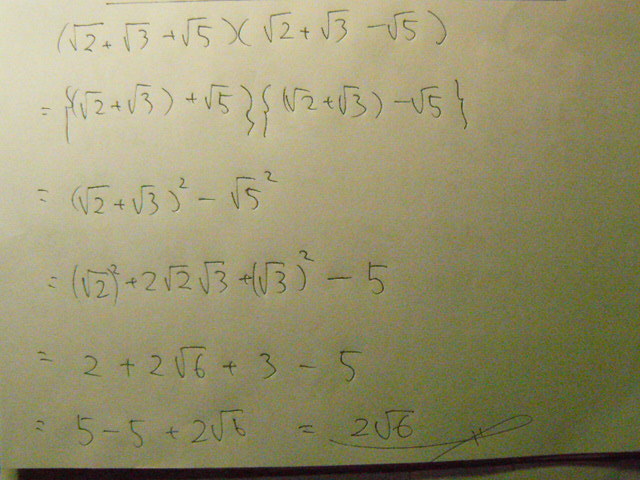 (√2+√3+√5)(√2+√3-√5)
={(√2+√3)+√5}{(√2+√3)-√5}
=(√2+√3)²-√5²
=(√2)²+2√2√3+(√3)²-5
=2+2√6+3-5
=5-5+2√6=2√6